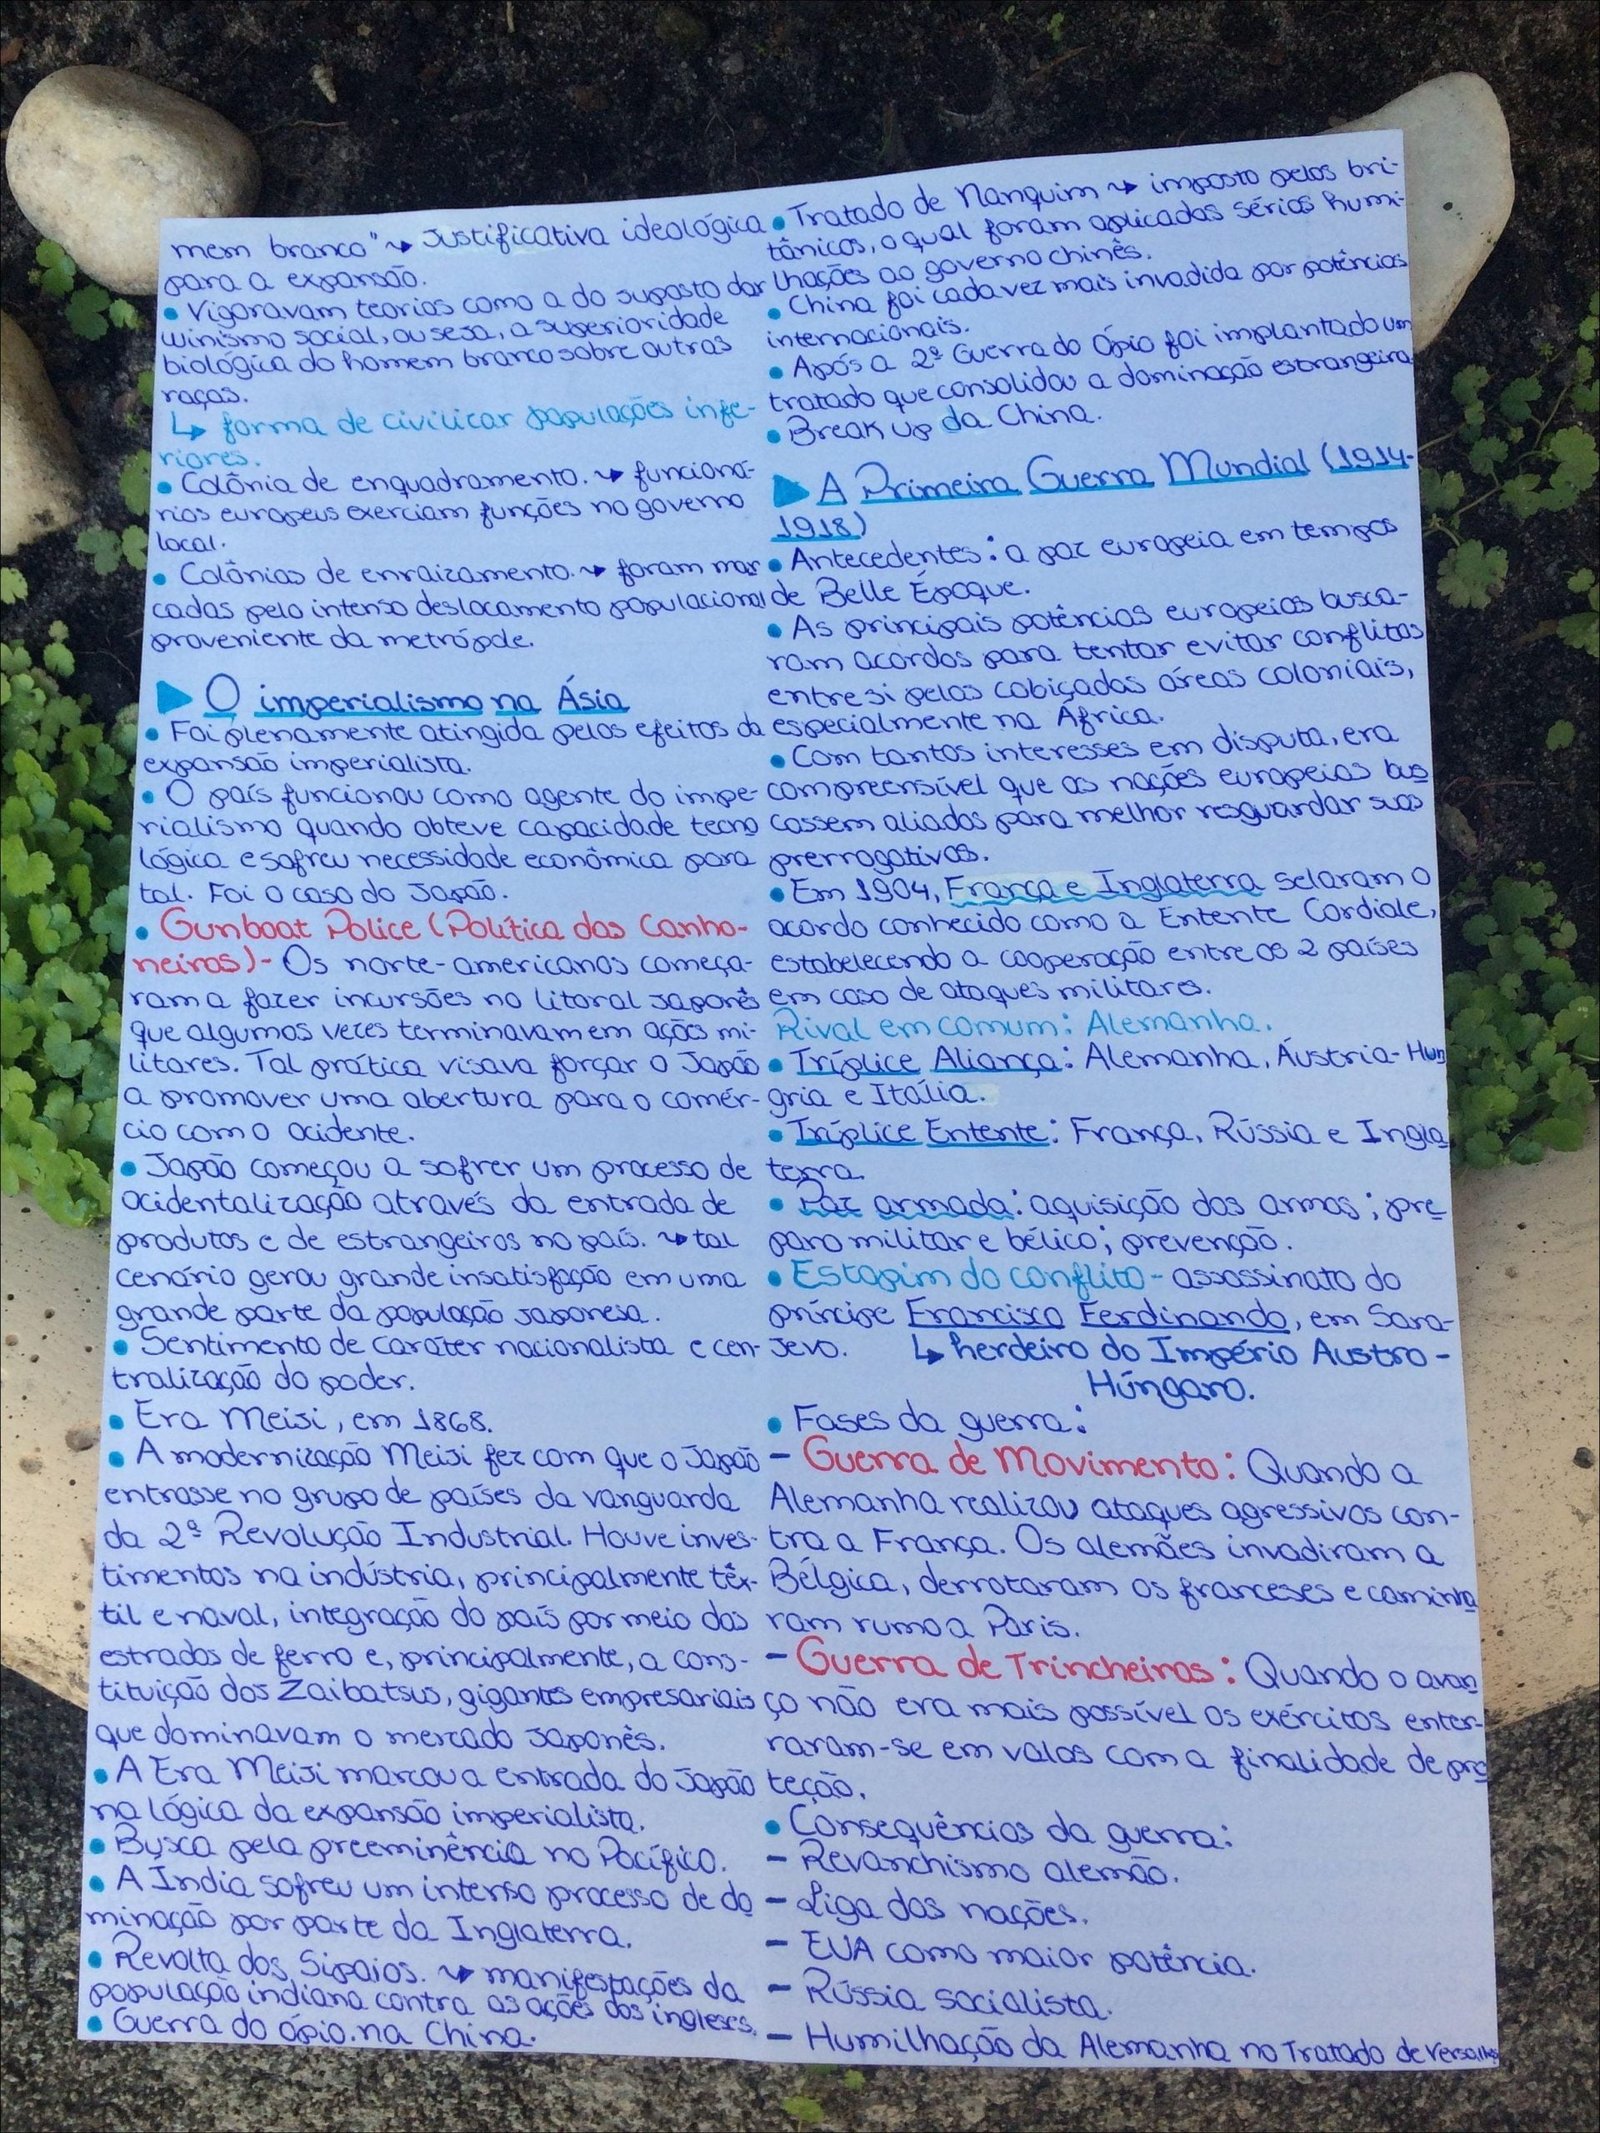 mem branco" ↝ Justificativa ideológica
para a expansão.
• Vigoravam teorias como a do suposto dar
winismo social, ou seja, a superioridade
biológica do homem branco sobre outras
raças.
↳ forma de civilizar populações infe-
riores.
• Colônia de enquadramento. ↝ funcioná-
rios europeus exerciam funções no governo
local.
• Colônias de enraizamento. ↝ foram mar
cadas pelo intenso deslocamento populacional
proveniente da metrópole.
▶ O imperialismo na Ásia
• Foi plenamente atingida pelos efeitos da
expansão imperialista.
• O país funcionou como agente do impe-
rialismo quando obteve capacidade tecno
lógica e sofreu necessidade econômica para
tal. Foi o caso do Japão.
• Gunboat Police (Política das Canho-
neiras) - Os norte-americanos começa-
ram a fazer incursões no litoral japonês
que algumas vezes terminavam em ações mi-
litares. Tal prática visava forçar o Japão
a promover uma abertura para o comér-
cio com o ocidente.
• Japão começou a sofrer um processo de
ocidentalização através da entrada de
produtos e de estrangeiros no país. ↝ tal
cenário gerou grande insatisfação em uma
grande parte da população japonesa.
• Sentimento de caráter nacionalista e cen-
tralização do poder.
• Era Meiji, em 1868.
• A modernização Meiji fez com que o Japão
entrasse no grupo de países da vanguarda
da 2ª Revolução Industrial. Houve inves-
timentos na indústria, principalmente têx-
til e naval, integração do país por meio das
estradas de ferro e, principalmente, a cons-
tituição dos Zaibatsus, gigantes empresariais
que dominavam o mercado japonês.
• A Era Meiji marcou a entrada do Japão
na lógica da expansão imperialista.
• Busca pela preeminência no Pacífico.
• A Índia sofreu um intenso processo de do
minação por parte da Inglaterra.
• Revolta dos Sipaios. ↝ manifestações da
população indiana contra as ações dos ingleses.
• Guerra do ópio. na China.
• Tratado de Nanquim ↝ imposto pelos bri-
tânicos, o qual foram aplicadas sérias humi-
lhações ao governo chinês.
• China foi cada vez mais invadida por potências
internacionais.
• Após a 2ª Guerra do Ópio foi implantado um
tratado que consolidou a dominação estrangeira
• Break up da China.
▶ A Primeira Guerra Mundial (1914-
1918)
• Antecedentes: a paz europeia em tempos
de Belle Époque.
• As principais potências europeias busca-
ram acordos para tentar evitar conflitos
entre si pelas cobiçadas áreas coloniais,
especialmente na África.
• Com tantos interesses em disputa, era
compreensível que as nações europeias bus
cassem aliados para melhor resguardar suas
prerrogativas.
• Em 1904, França e Inglaterra selaram o
acordo conhecido como a Entente Cordiale,
estabelecendo a cooperação entre os 2 países
em caso de ataques militares.
Rival em comum: Alemanha.
• Tríplice Aliança: Alemanha, Áustria-Hun
gria e Itália.
• Tríplice Entente: França, Rússia e Ingla
terra.
• Paz armada: aquisição das armas; pre
paro militar e bélico; prevenção.
• Estopim do conflito - assassinato do
príncipe Francisco Ferdinando, em Sara-
jevo. ↳ herdeiro do Império Austro-
Húngaro.
• Fases da guerra:
- Guerra de Movimento: Quando a
Alemanha realizou ataques agressivos con-
tra a França. Os alemães invadiram a
Bélgica, derrotaram os franceses e caminha
ram rumo a Paris.
- Guerra de Trincheiras: Quando o avan
ço não era mais possível os exércitos enter-
raram-se em valas com a finalidade de pro
teção.
• Consequências da guerra:
- Revanchismo alemão.
- Liga das nações.
- EUA como maior potência.
- Rússia socialista.
- Humilhação da Alemanha no Tratado de Versalhes